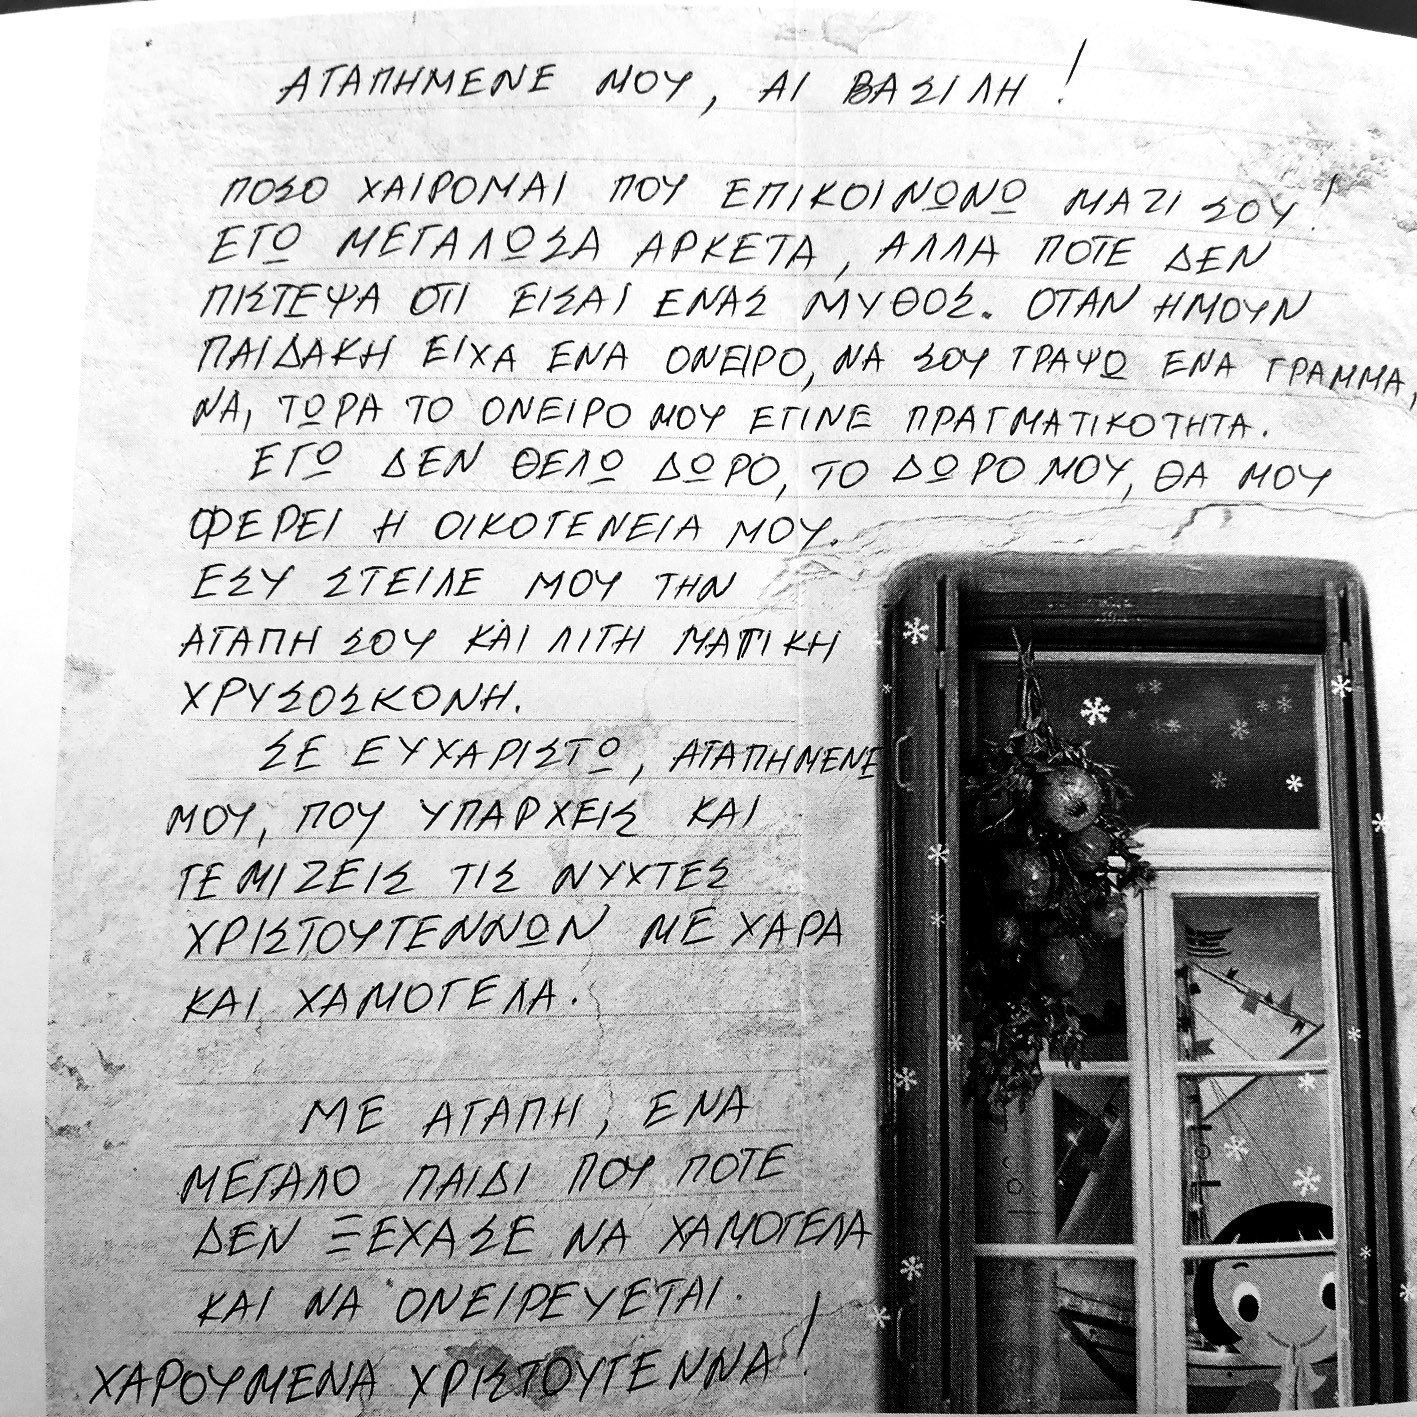 ΑΓΑΠΗΜΕΝΕ ΜΟΥ, ΑΙ ΒΑΣΙΛΗ!
ΠΟΣΟ ΧΑΙΡΟΜΑΙ ΠΟΥ ΕΠΙΚΟΙΝΩΝΩ ΜΑΖΙ ΣΟΥ!
ΕΓΩ ΜΕΓΑΛΩΣΑ ΑΡΚΕΤΑ, ΑΛΛΑ ΠΟΤΕ ΔΕΝ
ΠΙΣΤΕΨΑ ΟΤΙ ΕΙΣΑΙ ΕΝΑΣ ΜΥΘΟΣ. ΟΤΑΝ ΗΜΟΥΝ
ΠΑΙΔΑΚΗ ΕΙΧΑ ΕΝΑ ΟΝΕΙΡΟ, ΝΑ ΣΟΥ ΓΡΑΨΩ ΕΝΑ ΓΡΑΜΜΑ,
ΝΑ, ΤΩΡΑ ΤΟ ΟΝΕΙΡΟ ΜΟΥ ΕΓΙΝΕ ΠΡΑΓΜΑΤΙΚΟΤΗΤΑ.
ΕΓΩ ΔΕΝ ΘΕΛΩ ΔΩΡΟ, ΤΟ ΔΩΡΟ ΜΟΥ, ΘΑ ΜΟΥ
ΦΕΡΕΙ Η ΟΙΚΟΓΕΝΕΙΑ ΜΟΥ.
ΕΣΥ ΣΤΕΙΛΕ ΜΟΥ ΤΗΝ
ΑΓΑΠΗ ΣΟΥ ΚΑΙ ΛΙΓΗ ΜΑΓΙΚΗ
ΧΡΥΣΟΣΚΟΝΗ.
ΣΕ ΕΥΧΑΡΙΣΤΩ, ΑΓΑΠΗΜΕΝΕ
ΜΟΥ, ΠΟΥ ΥΠΑΡΧΕΙΣ ΚΑΙ
ΓΕΜΙΖΕΙΣ ΤΙΣ ΝΥΧΤΕΣ
ΧΡΙΣΤΟΥΓΕΝΝΩΝ ΜΕ ΧΑΡΑ
ΚΑΙ ΧΑΜΟΓΕΛΑ.
ΜΕ ΑΓΑΠΗ, ΕΝΑ
ΜΕΓΑΛΟ ΠΑΙΔΙ ΠΟΥ ΠΟΤΕ
ΔΕΝ ΞΕΧΑΣΕ ΝΑ ΧΑΜΟΓΕΛΑ
ΚΑΙ ΝΑ ΟΝΕΙΡΕΥΕΤΑΙ.
ΧΑΡΟΥΜΕΝΑ ΧΡΙΣΤΟΥΓΕΝΝΑ!